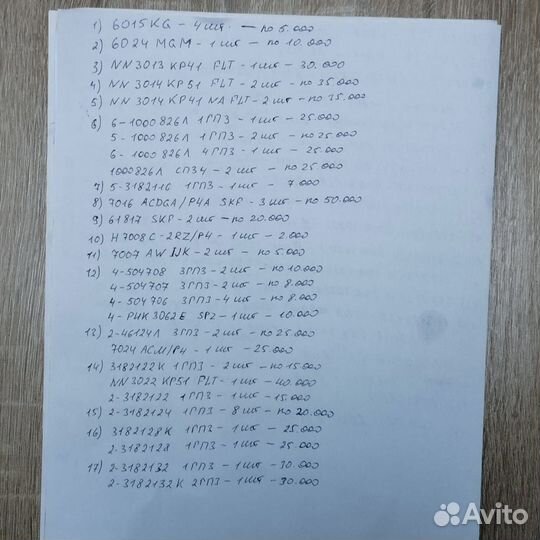 1) 6015KG - 4 шт. - по 5.000
2) 6024 MGM - 1 шт - по 10.000
3) NN3013 KP41 FLT - 1 шт - 30.000
4) NN 3014 KP51 FLT - 2 шт - по 35.000
5) NN 3014 KP41 NA FLT - 2 шт - по 35.000
6) 6-1000826Л 1ГПЗ - 1 шт - 25.000
5-1000826Л 1ГПЗ - 2 шт - по 25.000
6-1000826Л 4ГПЗ - 1 шт - 25.000
1000826Л СПЗ4 - 2 шт - по 25.000
7) 5-3182116 1ГПЗ - 1 шт - 7.000
8) 7016 ACDGA/P4A SKF - 3 шт - по 50.000
9) 61817 SKF - 2 шт - по 20.000
10) H7008C-2RZ/P4 - 1 шт - 2.000
11) 7007 AW IJK - 2 шт - по 5.000
12) 4-504708 3ГПЗ - 2 шт - по 10.000
4-504707 3ГПЗ - 2 шт - по 8.000
4-504706 3ГПЗ - 4 шт - по 8.000
4-РНК 3062Е SPZ - 1 шт - 10.000
13) 2-46124Л 3ГПЗ - 2 шт - по 25.000
7024 ACM/P4 - 1 шт - 25.000
14) 3182122К 1ГПЗ - 2 шт - по 15.000
NN 3022 KP51 FLT - 1 шт - 40.000
2-3182122 1ГПЗ - 1 шт - 15.000
15) 2-3182124 1ГПЗ - 8 шт - по 20.000
16) 3182128К 1ГПЗ - 1 шт - 25.000
2-3182128 1ГПЗ - 1 шт - 25.000
17) 2-3182132 1ГПЗ - 1 шт - 30.000
2-3182132К 2ГПЗ - 1 шт - 30.000
Avito